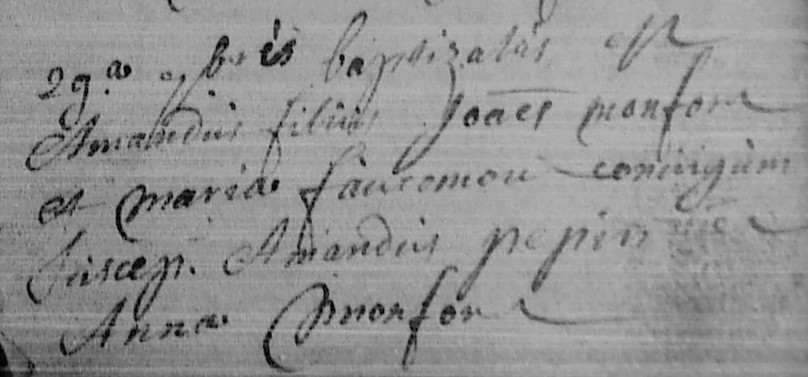 29.a 7bris baptizatus est
Amandus filius Joaēs monfor
et maria faucomon coniugum
suscep. Amandus pepin et
Anna monfor